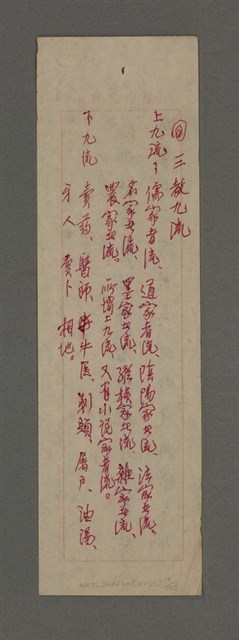 @ 三教九流
上九流： 儒家者流、道家者流、陰陽家者流、法家者流、
名家者流、墨家者流、縱橫家者流、雜家者流、
農家者流。 所謂上九流，又有小說家者流。
下九流 賣药、醫師、牛医、剃頭、屠戶、油湯、
牙人 賣卜 相地。